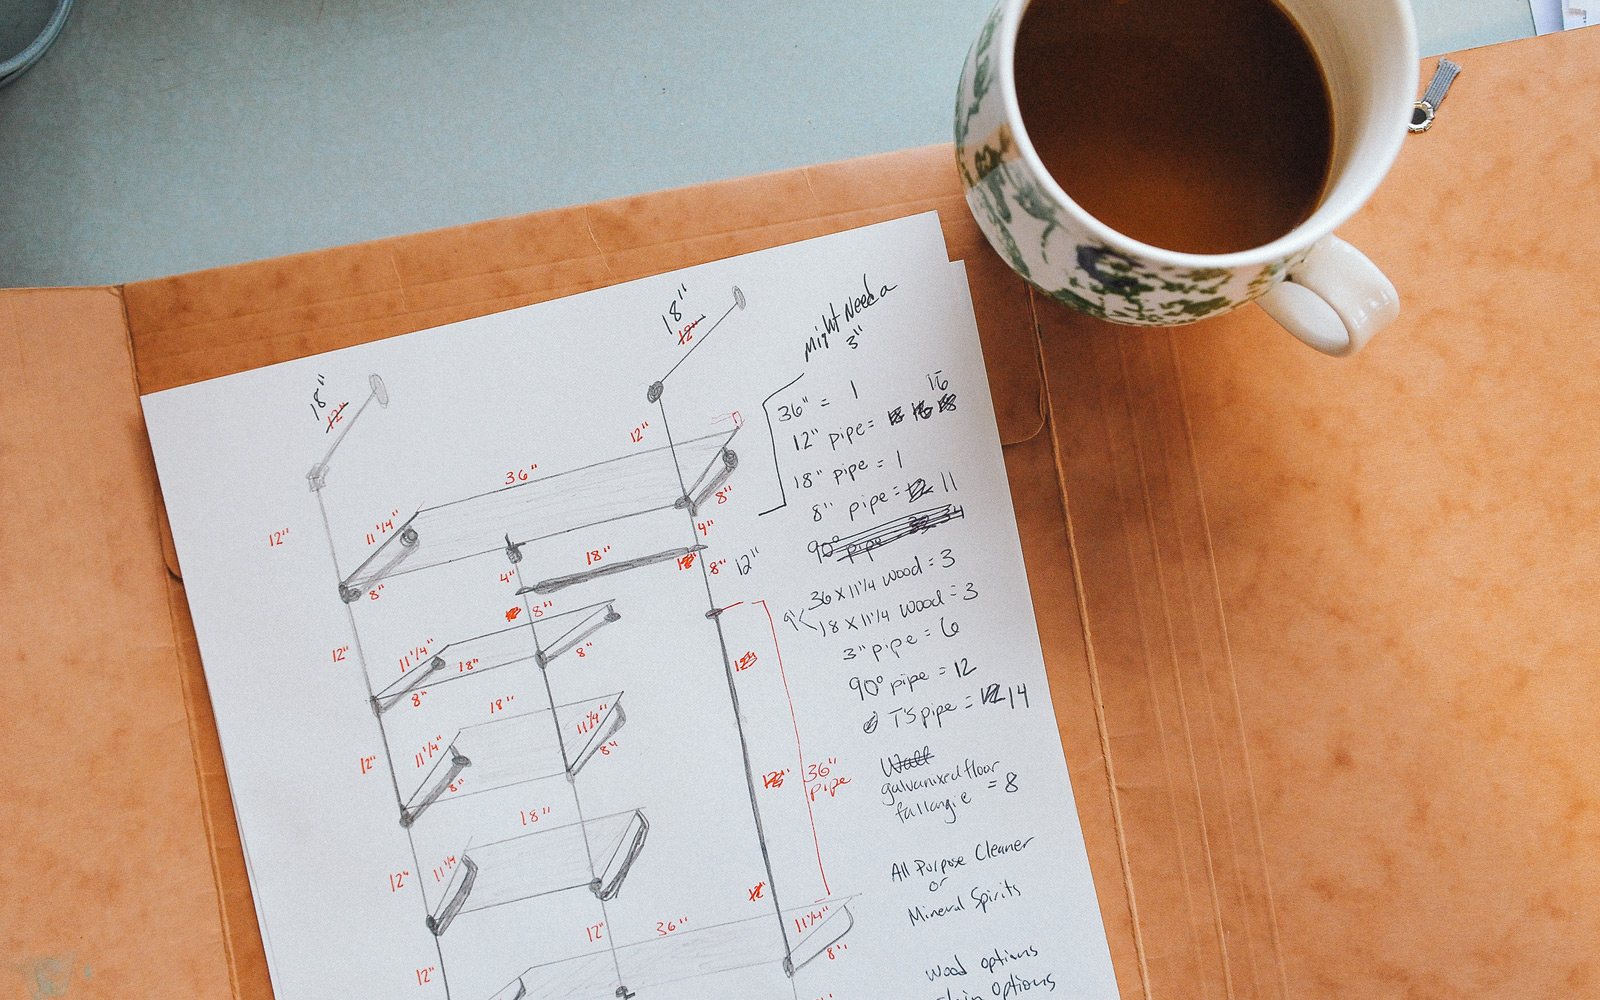 18"
12"
18"
12"
12"
36"
12"
11 1/4"
8"
8"
4"
18"
4"
8"
12"
8"
12"
11 1/4"
18"
8"
8"
18"
12"
11 1/4"
8"
11 1/4"
84
36"
pipe
18"
12"
11 1/4
12"
36"
11 1/4"
8"
12"
Might Need a
3"
36" = 1
12" pipe = 16
18" pipe = 1
8" pipe = 11
90° pipe
36 x 11 1/4 wood = 3
18 x 11 1/4 wood = 3
3" pipe = 6
90° pipe = 12
T'S pipe = 14
Wall
galvanixed floor
fallangie = 8
All Purpose Cleaner
or
Mineral Spirits
Wood options
options